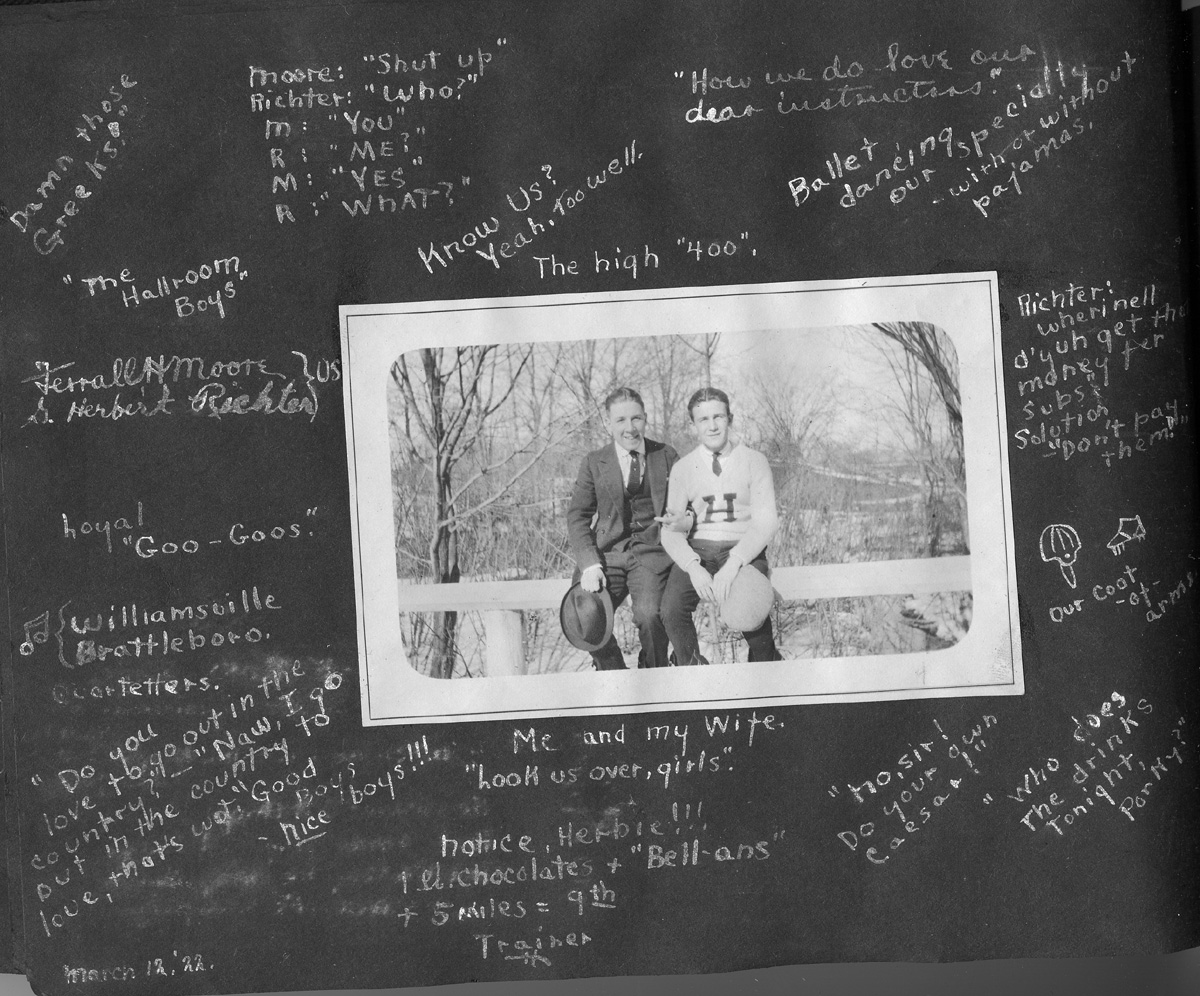 Damn those
Greeks!"
Moore: "Shut up"
Richter: "Who?"
M: "You"
R: "ME?"
M: "YES"
R: "WHAT?"
"How we do love our
dear instructors."
Ballet
dancing specially
our
-with or without
pajamas.
Know Us?
Yeah. Too well.
The high "400".
"The
Hallroom
Boys"
Ferrall H Moore } US
S. Herbert Richter
Loyal
"Goo-Goos".
Williamsville
Brattleboro.
Quartetters.
Richter:
d'yuh get the
money fer
subs?
Solution
-"Don't pay
them!"
H
Our coat
-of-
arms
"Do you
love to go out in the
country?" - "Naw, I go
out in the country to
love, thats wot." Good
Boys
- Nice Boys!!!
Me and my Wife.
"Look us over, girls".
"No, sir!
Do your own
Caesar!"
"Who does
the drinks
Tonight,
Porky?"
Notice, Herbie!!!
1 lb. chocolates + "Bell-ans"
+ 5 Miles = 9th
Trainer
March 12, '22.